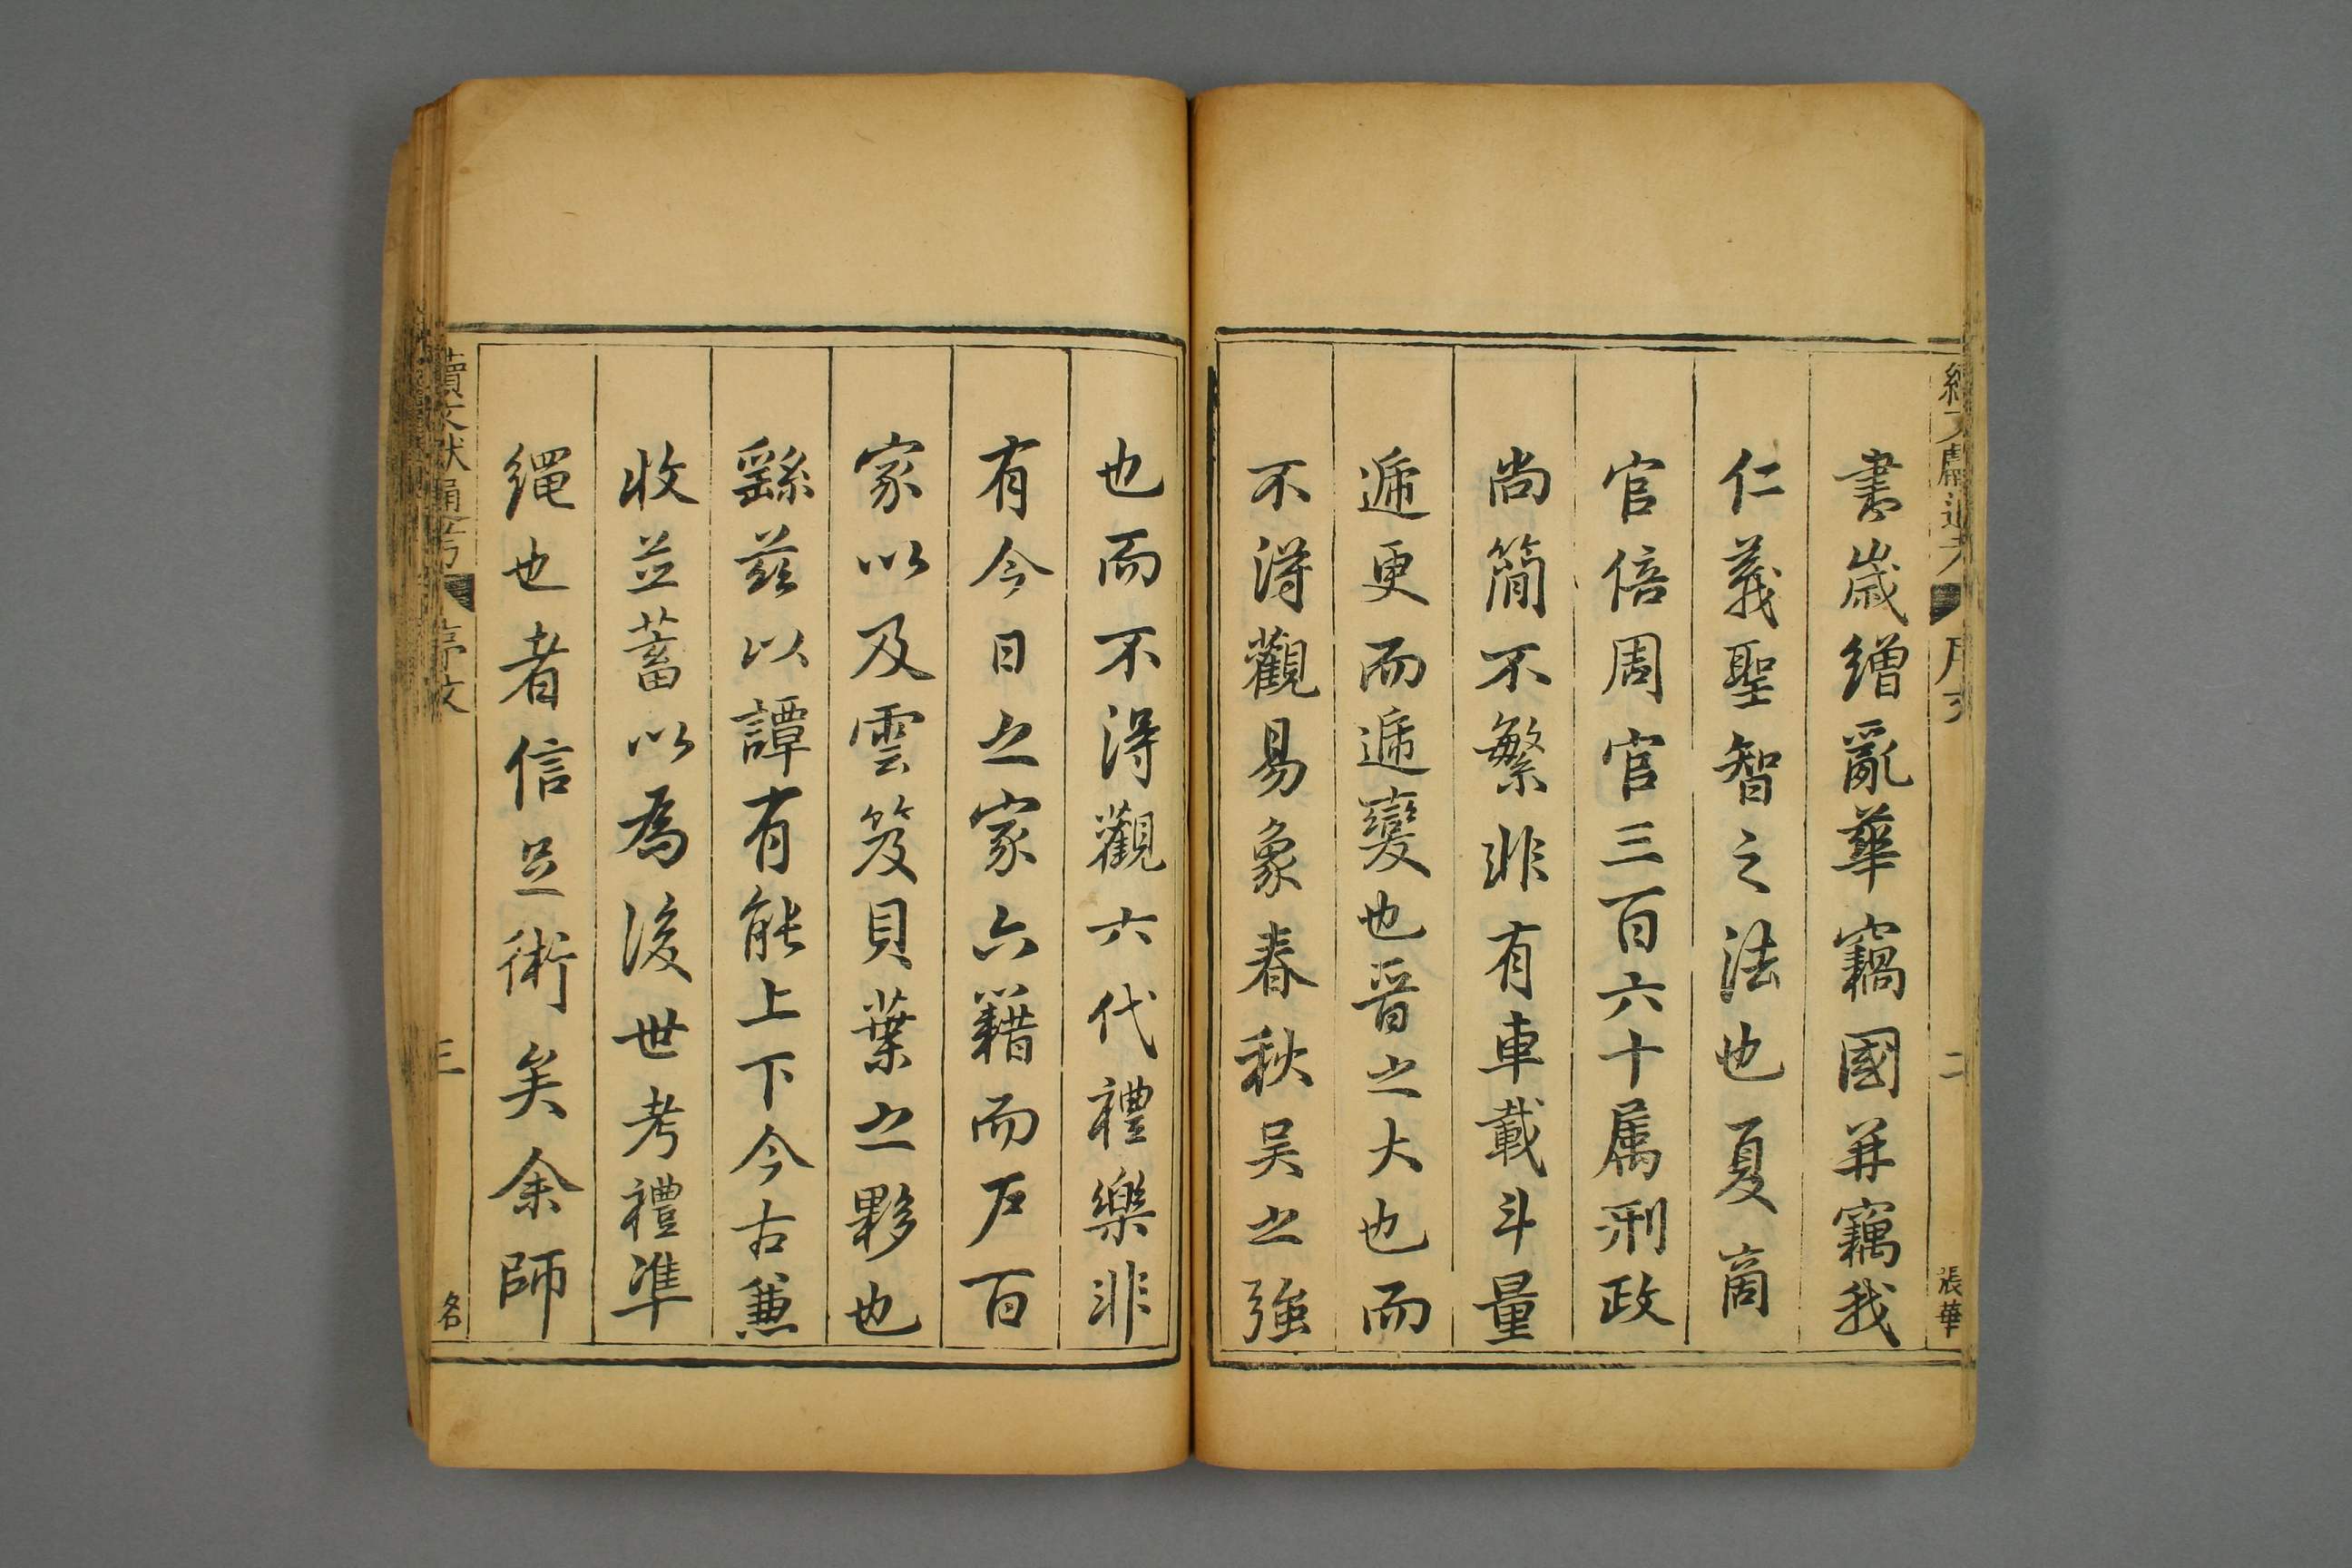 書歲繒亂華竊國并竊我
仁義聖智之法也夏商
官倍周官三百六十属刑政
尚簡不繁非有車載斗量
遞更而遞變也晋之大也而
不淂觀易象春秋吴之強
也而不淂觀六代禮樂非
有今日之家六籍而户百
家以及雲笈貝葉之夥也
繇茲以譚有能上下今古兼
收並蓄以為後世考禮準
繩也者信足術矣余師
續文獻通考 序文 二 張華
續文獻通考 序文 三 名